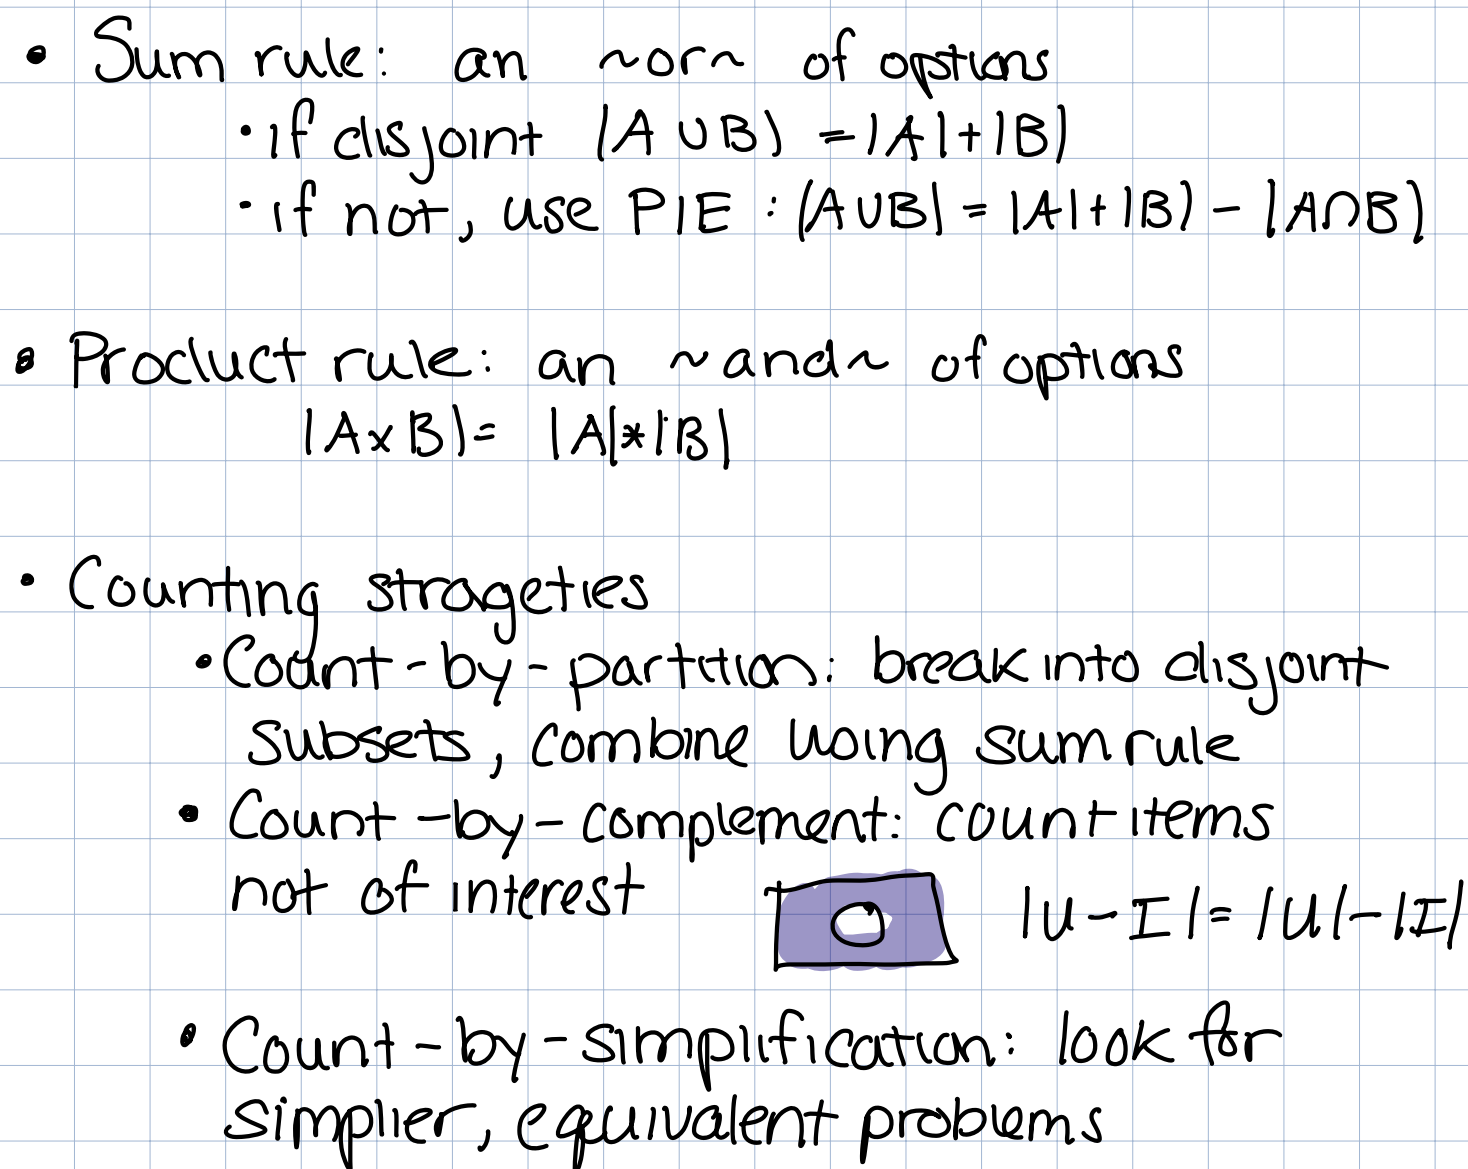 • Sum rule: an ~or~ of options
• if disjoint |A ∪ B| = |A| + |B|
• if not, use PIE : |A∪B| = |A| + |B| - |A∩B|
• Product rule: an ~and~ of options
|A x B| = |A| * |B|
• Counting strageties
• Count-by-partition: break into disjoint
subsets, combine using sum rule
• Count-by-complement: count items
not of interest
|U - I| = |U| - |I|
• Count-by-simplification: look for
simplier, equivalent problems